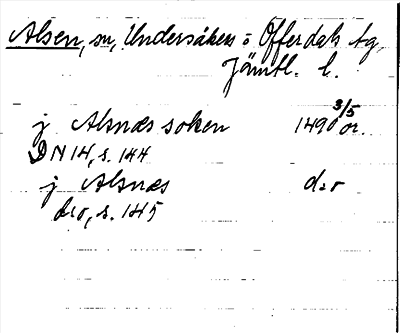 Alsen, sn, Undersåkers o Offerdals tg
Jämtl. l.
j Alsnæs soken 1490 3/5 or.
DN 14, s. 144
j Alsnæs d:o
d:o, s. 145